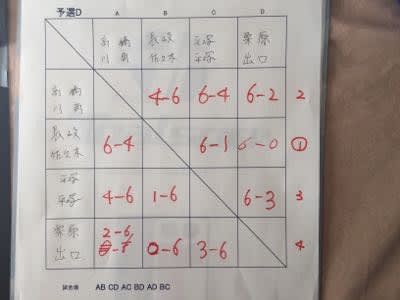 予選D
A B C D
長政 平塚 栗原
川 佐々木 平塚 出口
川 4-6 6-4 6-2 2
長政
佐々木 6-4 6-1 6-0 1
平塚
平塚 4-6 1-6 6-3 3
栗原 2-6
出口 0-6 3-6 4
試合順 AB CD AC BD AD BC